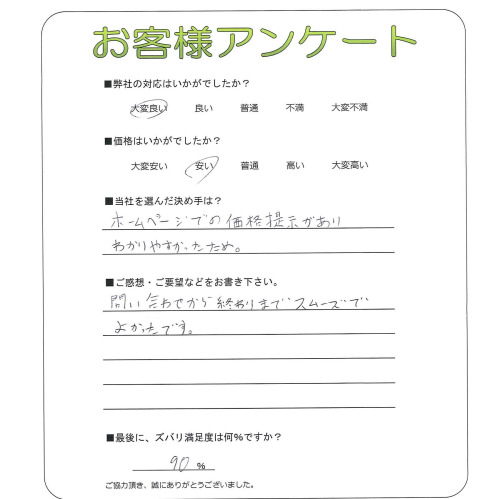 お客様アンケート
■弊社の対応はいかがでしたか？
大変良い 良い 普通 不満 大変不満
■価格はいかがでしたか？
大変安い 安い 普通 高い 大変高い
■当社を選んだ決め手は？
ホームページでの価格提示があり
わかりやすかったため。
■ご感想・ご要望などをお書き下さい。
問い合わせから終わりまでスムーズで
よかったです。
■最後に、ズバリ満足度は何％ですか？
90 ％
ご協力頂き、誠にありがとうございました。